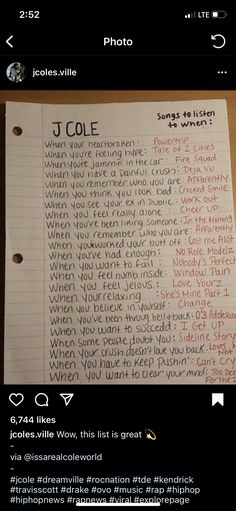 2:52
LTE
Photo
jcoles.ville
J COLE
Songs to listen
to when:
When your heartbroken: Powertrip
When you're feeling hype: Tale of 2 Cities
When you're jammin' in the car: Fire Squad
When you have a painful crush: Deja Vu
When you remember who you are: Apparently
When you think you look bad: Crooked Smile
When you see your ex in public: Work out
When you feel really alone: Cheer up
When you've been liking someone: In the Morning
When you remember who you are: Apparently
When you worked your butt off: Cost me A lot
When you've had enough: No Role Modelz
When you want to fail: Nobody's Perfect
When you feel numb inside: Window Pain
When you feel jelous: Love Yourz
When your relaxing: She's Mine Part 1
When you believe in yourself: Change
When you've been throug hell & back: 03 Adolescence
When you want to succedd: I Get UP
When some people doubt you: Sideline Story
When your crush doesn't love you back: Loves Not
When you have to keep pushin': Can't Cry
When you want to clear your mind: Too Deep
For the I
6,744 likes
jcoles.ville Wow, this list is great 💫
-
via @issarealcoleworld
-
#jcole #dreamville #rocnation #tde #kendrick
#travisscott #drake #ovo #music #rap #hiphop
#hiphopnews #rapnews #viral #explorepage